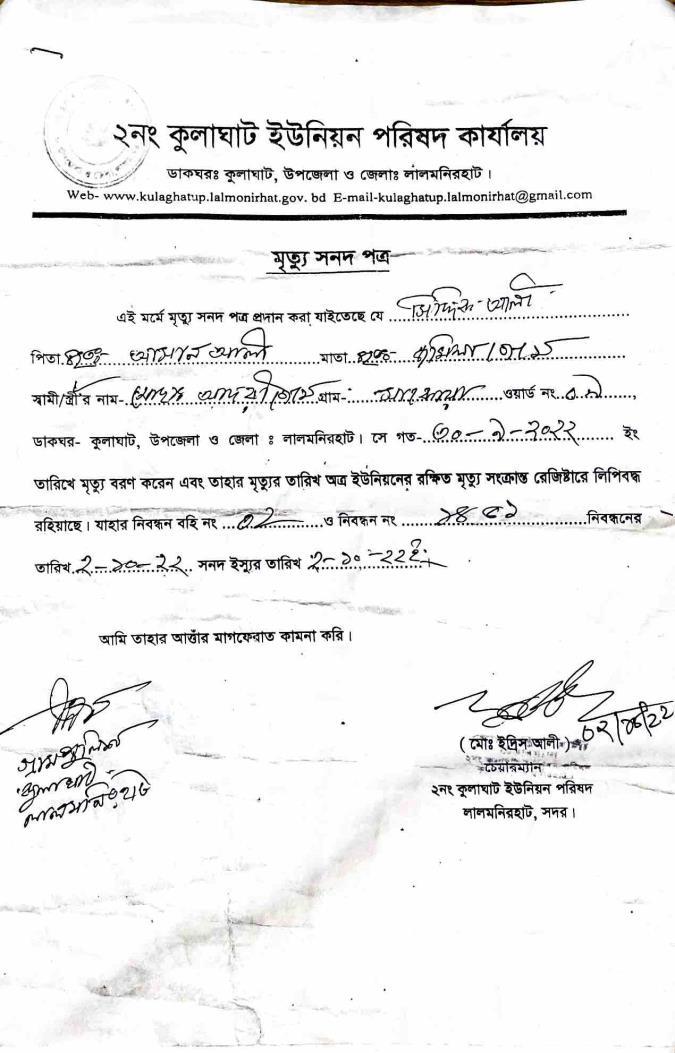 ২নং কুলাঘাট ইউনিয়ন পরিষদ কার্যালয়
ডাকঘরঃ কুলাঘাট, উপজেলা ও জেলাঃ লালমনিরহাট।
Web- www.kulaghatup.lalmonirhat.gov. bd E-mail-kulaghatup.lalmonirhat@gmail.com
মৃত্যু সনদ পত্র
এই মর্মে মৃত্যু সনদ পত্র প্রদান করা যাইতেছে যে ছিদ্দিক আলী
পিতা. মৃত- আসান আলী মাতা. মৃত-
স্বামী/স্ত্রী'র নাম- মোছাঃ গ্রাম- ওয়ার্ড নং.
ডাকঘর- কুলাঘাট, উপজেলা ও জেলা ঃ লালমনিরহাট। সে গত- ৩০-৯-২০২২ ইং
তারিখে মৃত্যু বরণ করেন এবং তাহার মৃত্যুর তারিখ অত্র ইউনিয়নের রক্ষিত মৃত্যু সংক্রান্ত রেজিষ্টারে লিপিবদ্ধ
রহিয়াছে। যাহার নিবন্ধন বহি নং ০২ ও নিবন্ধন নং নিবন্ধনের
তারিখ. ২-১০-২২ সনদ ইস্যুর তারিখ ২-১০-২২ইং
আমি তাহার আত্মার মাগফেরাত কামনা করি।
গ্রাম পুলিশ
কুলাঘাট
লালমনিরহাট
০২/১০/২২
( মোঃ ইদ্রিস আলী )
চেয়ারম্যান
২নং কুলাঘাট ইউনিয়ন পরিষদ
লালমনিরহাট, সদর।